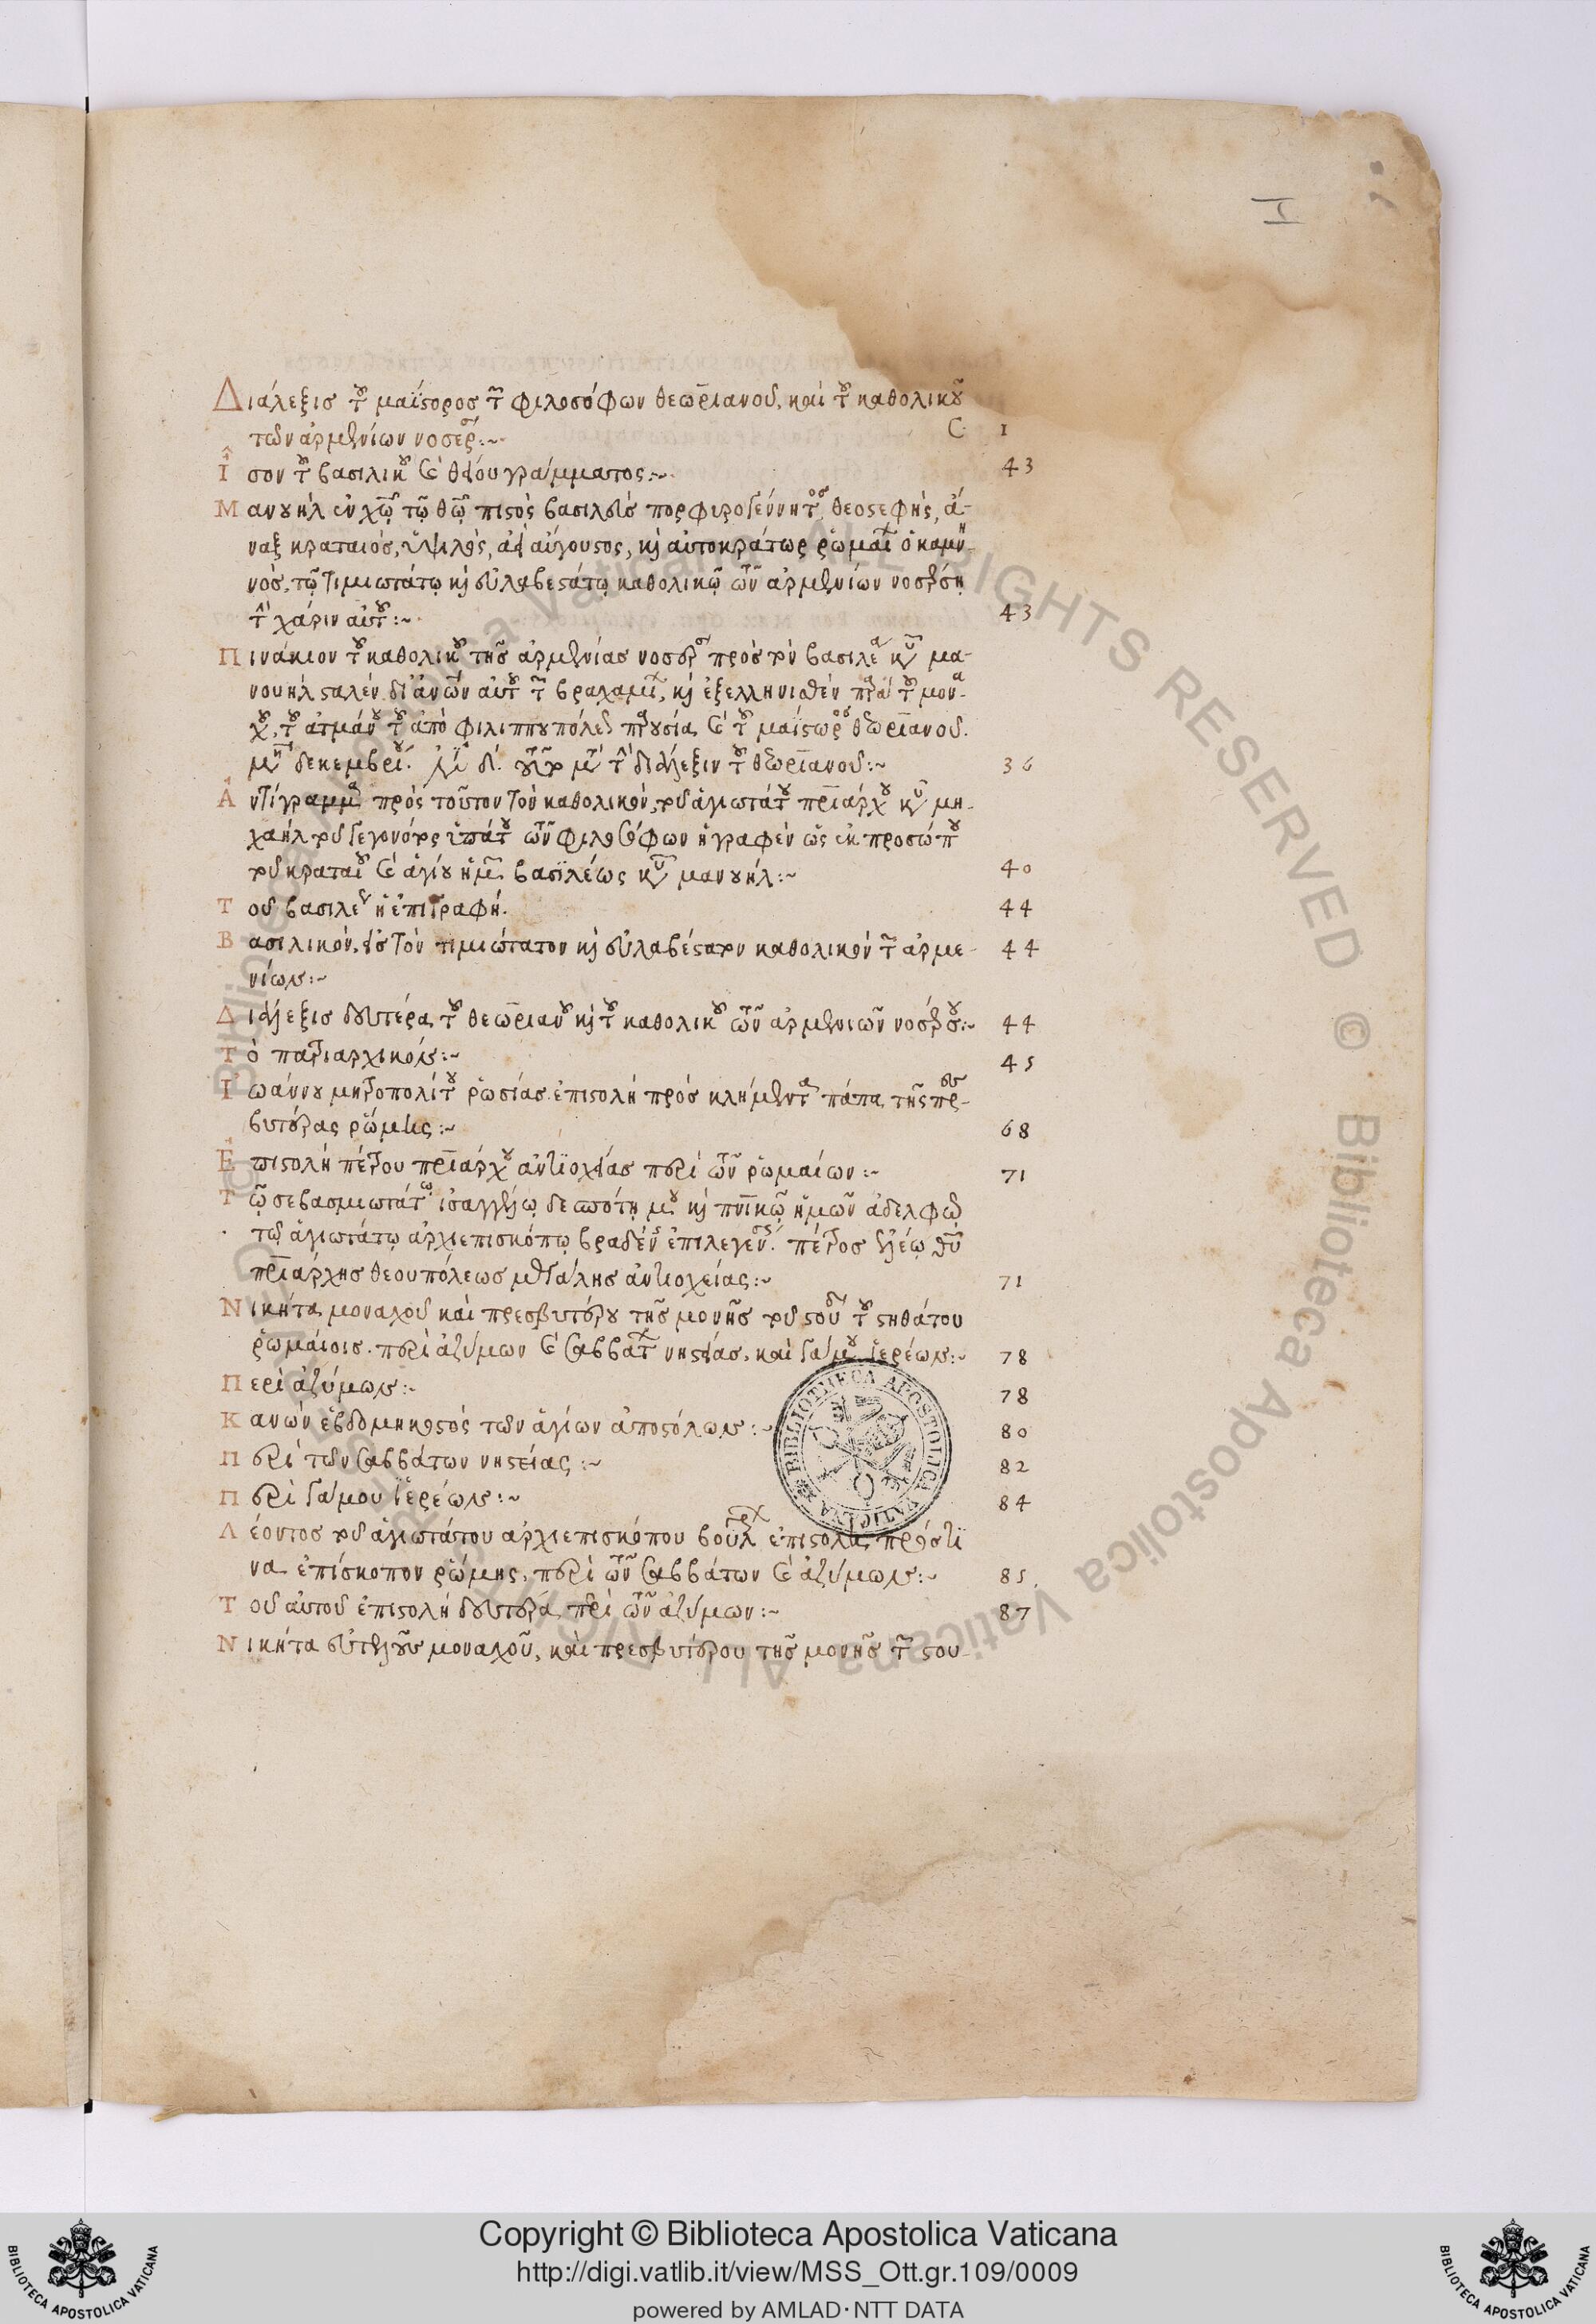 I
Διάλεξις τοῦ μαΐστορος τῶν φιλοσόφων θεωριανοῦ, καὶ τοῦ καθολικοῦ
τῶν ἀρμενίων νοσερ:~ C 1
Ἴσον τοῦ βασιλικοῦ καὶ θείου γράμματος:~ 43
Μανουὴλ ἐν χῶ τῶ θῶ πιστὸς βασιλεὺς πορφυρογέννητος, θεοστεφὴς, ἄ-
ναξ κραταιὸς, ὑψιλὸς, ἀεὶ αὔγουστος, καὶ αὐτοκράτωρ ῥωμαίων ὁ κομνη-
νὸς, τῶ τιμιωτάτω καὶ εὐλαβεστάτω καθολικῶ τῶν ἀρμενίων νοσερση
τὴν χάριν αὐτοῦ:~ 43
Πινάκιον τοῦ καθολικοῦ τῆς ἀρμενίας νοσερσ πρὸς τὸν βασιλέα κὺρ μα-
νουὴλ σταλὲν δι' ἀνῶν αὐτοῦ τῶν, καὶ ἐξελληνισθὲν παρὰ τοῦ μονα-
χοῦ, τοῦ ἀτμάνου τοῦ ἀπὸ φιλιππουπόλεως παρουσία καὶ τοῦ μαΐστωρος θεωριανοῦ.
μηνὶ δεκεμβρίου. δ. μετὰ τὴν διάλεξιν τοῦ θεωριανοῦ:~ 36
Ἀντίγραμμα πρὸς τοῦτον τὸν καθολικὸν, τοῦ ἁγιωτάτου πριάρχου κὺρ μι-
χαὴλ τοῦ γεγονότος ὑπάτου τῶν φιλοσόφων ἢ γραφὲν ὡς ἐκ προσώπου
τοῦ κραταιοῦ καὶ ἁγίου ἡμῶν βασιλέως κὺρ μανουήλ:~ 40
Τοῦ βασιλέως ἡ ἐπιγραφή. 44
Βασιλικὸν, εἰς τὸν τιμιώτατον καὶ εὐλαβέστατον καθολικὸν τῶν ἀρμε- 44
νίων:~
Διάλεξις δευτέρα τοῦ θεωριανοῦ καὶ τοῦ καθολικοῦ τῶν ἀρμενιῶν νοσέρσου:~ 44
Τὸ πατριαρχικόν:~ 45
Ἰωάννου μητροπολίτου ῥωσίας ἐπιστολὴ πρὸς κλήμεντα πάπα τῆς πρεσ-
βυτέρας ῥώμης:~ 68
Ἐπιστολὴ πέτρου πριάρχου ἀντιοχείας περὶ τῶν ῥωμαίων:~ 71
Τῶ σεβασμιωτάτω ἰσαγγέλω δεσπότη μου καὶ πνικῶ ἡμῶν ἀδελφῶ
τῶ ἁγιωτάτω ἀρχιεπισκόπω γραδένσ ἐπιλεγεν. πέτρος ἐλέω θῦ
πριάρχης θεουπόλεως μεγάλης ἀντιοχείας:~ 71
Νικήτα μοναχοῦ καὶ πρεσβυτέρου τῆς μονῆς τοῦ στουδίου τοῦ στηθάτου
ῥωμαίοις. περὶ ἀζύμων καὶ σαββάτων νηστείας, καὶ γάμου ἱερέων:~ 78
Περὶ ἀζύμων:~ 78
Κανὼν ἑβδομηκοστὸς τῶν ἁγίων ἀποστόλων:~ 80
Περὶ τῶν σαββάτων νηστείας:~ 82
Περὶ γάμου ἱερέων:~ 84
Λέοντος τοῦ ἁγιωτάτου ἀρχιεπισκόπου βουλγαρ ἐπιστολὴ πρός τι
να ἐπίσκοπον ῥώμης, περὶ τῶν σαββάτων καὶ ἀζύμων:~ 85
Τοῦ αὐτοῦ ἐπιστολὴ δευτέρα περὶ τῶν ἀζύμων:~ 87
Νικήτα εὐτελοῦς μοναχοῦ, καὶ πρεσβυτέρου τῆς μονῆς τῶν στου-
BIBLIOTHECA APOSTOLICA VATICANA
© Biblioteca Apostolica Vaticana ALL RIGHTS RESERVED
Copyright © Biblioteca Apostolica Vaticana
http://digi.vatlib.it/view/MSS_Ott.gr.109/0009
powered by AMLAD·NTT DATA
BIBLIOTECA APOSTOLICA VATICANA
BIBLIOTECA APOSTOLICA VATICANA